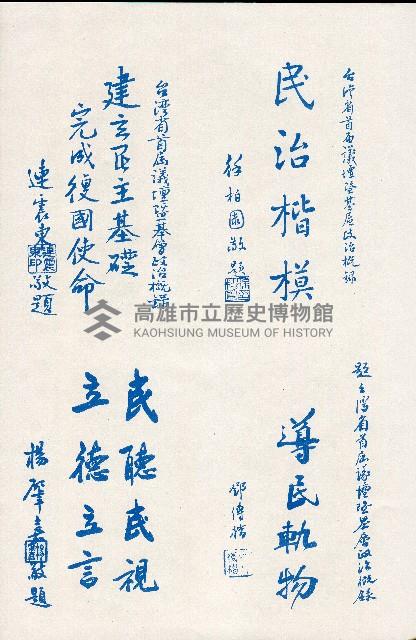 台灣省首屆議壇暨基層政治概錄
民治楷模
徐柏園敬題
台灣省首屆議壇暨基層政治概錄
建立民主基礎
完成復國使命
連震東敬題
連震東印
高雄市立歷史博物館
KAOHSIUNG MUSEUM OF HISTORY
題台灣省首屆議壇暨基層政治概錄
導民軌物
鄧傳楷
民聽民視
立德立言
楊肇嘉敬題